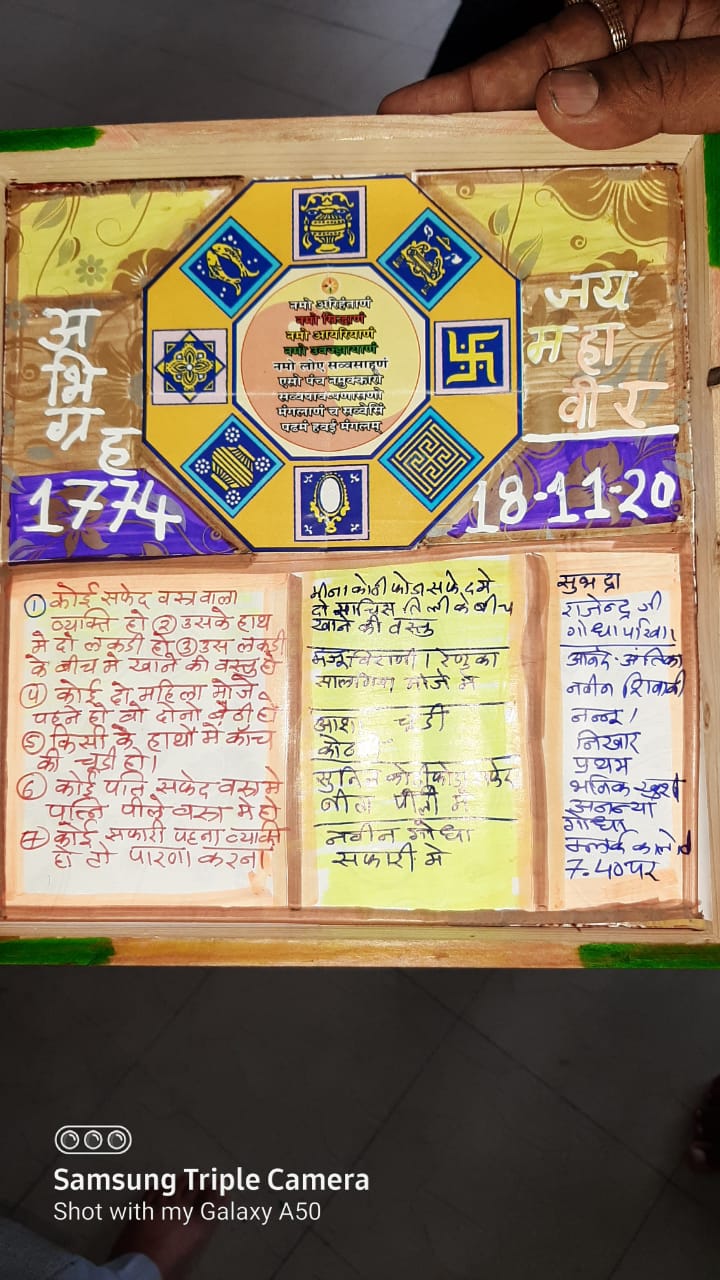 अभिग्रह
1774
नमो अरिहंताणं
नमो सिद्धाणं
नमो आयरियाणं
नमो उवज्झायाणं
नमो लोए सव्वसाहूणं
एसो पंच नमुक्कारो
सव्वपावप्पणासणो
मंगलाणं च सव्वेसिं
पढमं हवई मंगलम्
जय
महा
वीर
18-11-20
① कोई सफेद वस्त्र वाला
व्यक्ति हो ② उसके हाथ
मे दो लकडी हो ③ उस लकडी
के बीच मे खाने की वस्तु हो
④ कोई दो महिला मोजे
पहने हो वो दोनो बैठी हो
⑤ किसी के हाथो मे काँच
की चूडी हो।
⑥ कोई पति सफेद वस्त्र मे
पत्नि पीले वस्त्र मे हो
⑦ कोई सफारी पहना व्यक्ती
हो तो पारणा करना।
मीना कोठीफोडा सफेद मे
दो माचिस तिली के बीच
खाने की वस्तु
रेणुका
मोजे मे
आशा चूडी
सुनिल कोठीफोडा सफेद
पीली मे
नवीन गोधा
सफारी मे
सुभद्रा
राजेन्द्र जी
गोधा परिवार
आनंद अंतिका
नवीन शिवानी
नन्नू।
निखार
प्रथम
भविक खुशी
अनन्या
गोधा
7.40 पर